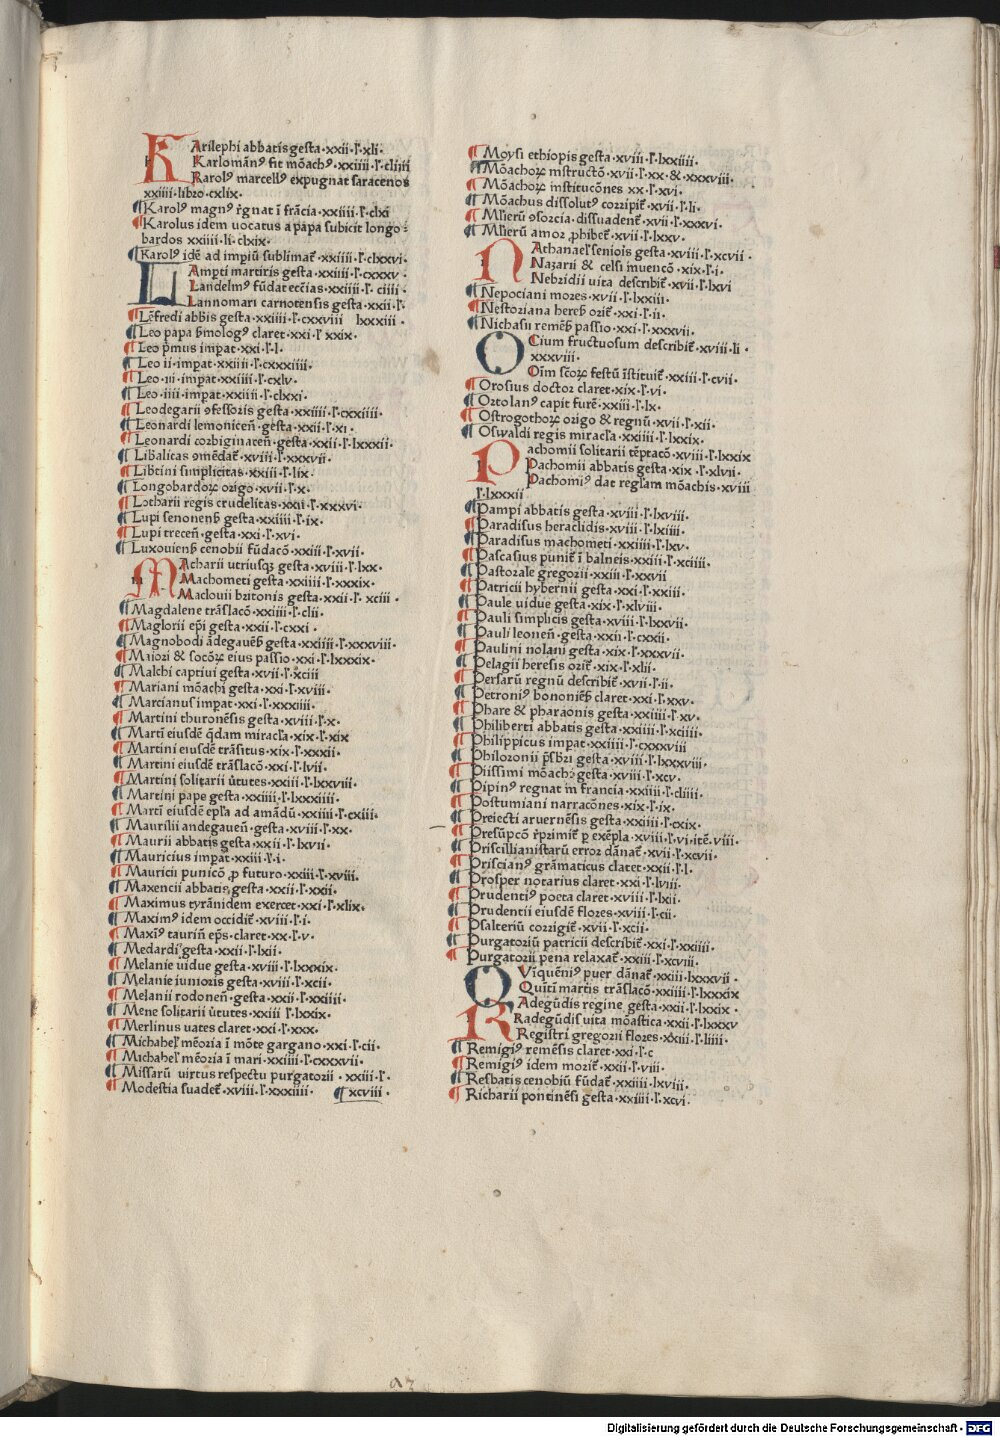 KArilephi abbatis gesta·xxii·l̕·xli·
Karlomãnꝰ fit mõachꝰ·xxiiii·l̕·cliiii
Karolꝰ marcellꝰ expugnat saracenos
xxiiii·libro·cxlix·
¶Karolꝰ magnꝰ r̃gnat ĩ frãcia·xxiiii·l̕·clxi
¶Karolus idem uocatus a papa subicit longo⸗
bardos xxiiii·li·clxix·
¶Karolꝰ idẽ ad impiũ sublimat̃·xxiiii·l̕·clxxvi·
LAmpti martiris gesta·xxiiii·l̕·cxxxv·
Landelmꝰ fũdat ecc̃ias·xxiiii·l̕·ciiii·
Lannomari carnotensis gesta·xxii·l̕·
¶Lẽfredi abbis gesta·xxiiii·l̕·cxxviii lxxxiii·
¶Leo papa h̃mologꝰ claret·xxi·l̕ xxix·
¶Leo p̃mus impat·xxi·l̕·l·
¶Leo ii·impat·xxiiii·l̕·cxxxiiii·
¶Leo·iii·impat·xxiiii·l̕·cxlv·
¶Leo·iiii·impat·xxiiii·l̕·clxxi·
¶Leodegarii ꝯfessoris gesta·xxiiii·l̕·cxxiiii·
¶Leonardi lemoniceñ·gesta·xxii·l̕·xi·
¶Leonardi corbiginateñ·gesta·xxii·l̕·lxxxii·
¶Libalitas ꝯmẽdat̃·xviii·l̕·xxxvii·
¶Libtini simplicitas·xxiii·l̕·lix·
¶Longobardoꝝ origo·xvii·l̕·x·
¶Lotharii regis crudelitas·xxii·l̕·xxxvi·
¶Lupi senonenẜ gesta·xxiiii·l̕·ix·
¶Lupi treceñ·gesta·xxi·l̕·xvi·
¶Luxouienẜ cenobii fũdacõ·xxiii·l̕·xvii·
MAcharii utriusqꝫ gesta·xviii·l̕·lxx·
Machometi gesta·xxiiii·l̕·xxxix·
Maclouii britonis gesta·xxii·l̕·xciii·
¶Magdalene trãslacõ·xxiiii·l̕·clii·
¶Maglorii ep̃i gesta·xxii·l̕·cxxi·
¶Magnobodi ãdegauẽẜ gesta·xxiiii·l̕·xxxviii·
¶Maiori & socõꝝ eius passio·xxi·l̕·lxxxix·
¶Malchi captiui gesta·xvii·l̕·xciii
¶Mariani mõachi gesta·xxi·l̕·xviii·
¶Marcianus impat·xxi·l̕·xxxiiii·
¶Martini thuronẽsis gesta·xviii·l̕·x·
¶Martĩ eiusdẽ q̃dam miracl̕a·xix·l̕·xix
¶Martini eiusdẽ trãsitus·xix·l̕·xxxii·
¶Martini eiusdẽ trãslacõ·xxi·l̕·lvii·
¶Martini solitarii ũtutes·xxiii·l̕·lxxviii·
¶Martini pape gesta·xxiiii·l̕·lxxxiiii·
¶Martĩ eiusdẽ epl̕a ad amãdũ·xxiiii·l̕·cxiii·
¶Maurilii andegaueñ·gesta·xviii·l̕·xx·
¶Maurii abbatis gesta·xxii·l̕·lxvii·
¶Mauricius impat·xxiii·l̕·i·
¶Mauricii punicõ ꝓ futuro·xxiii·l̕·xviii·
¶Maxencii abbatis gesta·xxii·l̕·xxii·
¶Maximus tyrãnidem exercet·xxi·l̕·xlix·
¶Maximꝰ idem occidit̃·xviii·l̕·i·
¶Maxiꝰ tauriñ ep̃s·claret·xx·l̕·v·
¶Medardi gesta·xxii·l̕·lxii·
¶Melanie uidue gesta·xviii·l̕·lxxxix·
¶Melanie iunioris gesta·xviii·l̕·xcii·
¶Melanii rodoneñ·gesta·xxii·l̕·xxiiii·
¶Mene solitarii ũtutes·xxiii·l̕·lxxix·
¶Merlinus uates claret·xxi·l̕·xxx·
¶Michahel̕ mẽoria ĩ mõte gargano·xxi·l̕·cii·
¶Michahel̕ mẽoria ĩ mari·xxiiii·l̕·cxxxvii·
¶Missarũ uirtus respectu purgatorii·xxiii·l̕·
¶Modestia suadet̃·xviii·l̕·xxxiiii· ¶xcviii·
¶Moysi ethiopis gesta·xviii·l̕·lxxiiii·
¶Mõachoꝝ instructõ·xvii·l̕·xx·&·xxxviii·
¶Mõachoꝝ institucõnes xx·l̕·xvi·
¶Mõachus dissolutꝰ corripit̃·xvii·l̕·li·
¶Ml̕ierũ ꝯsorcia·dissuadent̃·xvii·l̕·xxxvi·
¶Ml̕ierũ amor ꝓhibet̃·xvii·l̕·lxxv·
NAthanael senioris gesta·xviii·l̕·xcvii·
Nazarii & celsi inuencõ·xix·l̕·i·
Nebzidii uita describit̃·xvii·l̕·lxvi
¶Nepociani mores·xvii·l̕·lxxiii·
¶Nestoriana hereẜ orit̃·xxi·l̕·ii·
¶Nichasii remẽẜ passio·xxi·l̕·xxxvii·
OCium fructuosum describit̃·xviii·li·
xxxviii·
Oĩm scõꝝ festũ ĩstituit̃·xxiii·l̕·cvii·
¶Orosius doctor claret·xix·l̕·vi·
¶Ortolanꝰ capit furẽ·xxiii·l̕·lx·
¶Ostrogothoꝝ origo & regnũ·xvii·l̕·xii·
¶Oswaldi regis miracl̕a·xxiiii·l̕·lxxix·
Pachomii solitarii tẽptacõ·xviii·l̕·lxxix
Pachomii abbatis gesta·xix·l̕·xlvii·
Pachomiꝰ dat regl̕am mõachis·xviii
l̕·lxxxii
¶Pampi abbatis gesta·xviii·l̕·lxviii·
¶Paradisus heraclidis·xviii·l̕·lxiiii·
¶Paradisus machometi·xxiiii·l̕·lxv·
¶Pascasius punit̃ ĩ balneis·xxiii·l̕·xciiii·
¶Pastorale gregorii·xxiii·l̕·xxvii
¶Patricii hybernii gesta·xxi·l̕·xxiii·
¶Paule uidue gesta·xix·l̕·xlviii·
¶Pauli simplicis gesta·xviii·l̕·lxxvii·
¶Pauli leoneñ·gesta·xxii·l̕·cxxii·
¶Paulini nolani gesta·xix·l̕·xxxvii·
¶Pelagii heresis orit̃·xix·l̕·xlii·
¶Persarũ regnũ describit̃·xvii·l̕·ii·
¶Petroniꝰ bononiẽẜ claret·xxi·l̕·xxv·
¶Phare & pharaonis gesta·xxiiii·l̕·xv·
¶Philiberti abbatis gesta·xxiiii·l̕·xciiii·
¶Philippicus impat·xxiiii·l̕·cxxxviii
¶Philozonii p̃sbri gesta·xviii·l̕·lxxxviii·
¶Piissimi mõachꝫ gesta·xviii·l̕·xcv·
¶Pipinꝰ regnat in francia·xxiiii·l̕·cliiii·
¶Postumiani narracões·xix·l̕·ix·
¶Preiecti aruernẽsis gesta·xxiiii·l̕·cxix·
¶Presũpcõ r̃primit̃ ꝑ exẽpla·xviii·l̕·vi·itẽ·viii·
¶Priscillianistarũ error dãnat̃·xvii·l̕·xcvii·
¶Priscianꝰ grãmaticus claret·xxii·l̕·l·
¶Prosper notarius claret·xxi·l̕·lviii·
¶Prudentiꝰ poeta claret·xviii·l̕·lxii·
¶Prudentii eiusdẽ flores·xviii·l̕·cii·
¶Psalteriũ corrigit̃·xvii·l̕·xcii·
¶Purgatoriũ patricii describit̃·xxi·l̕·xxiiii·
¶Purgatorii pena relaxat̃·xxiii·l̕·xcviii·
QVĩquẽniꝰ puer dãnat̃·xxiii·lxxxvii·
Quĩtĩ martis trãslacõ·xxiiii·l̕·lxxxix
RAdegũdis regine gesta·xxii·l̕·lxxix·
Radegũdis uita mõastica·xxii·l̕·lxxxv
Registri gregorii flores·xxiii·l̕·liiii·
¶Remigiꝰ remẽsis claret·xxi·l̕·c
¶Remigiꝰ idem morit̃·xxii·l̕·viii·
¶Resbatis cenobiũ fũdat̃·xxiiii·lxviii·
¶Richarii pontinẽsi gesta·xxiiii·l̕·xcvi·
Digitalisierung gefördert durch die Deutsche Forschungsgemeinschaft - DFG